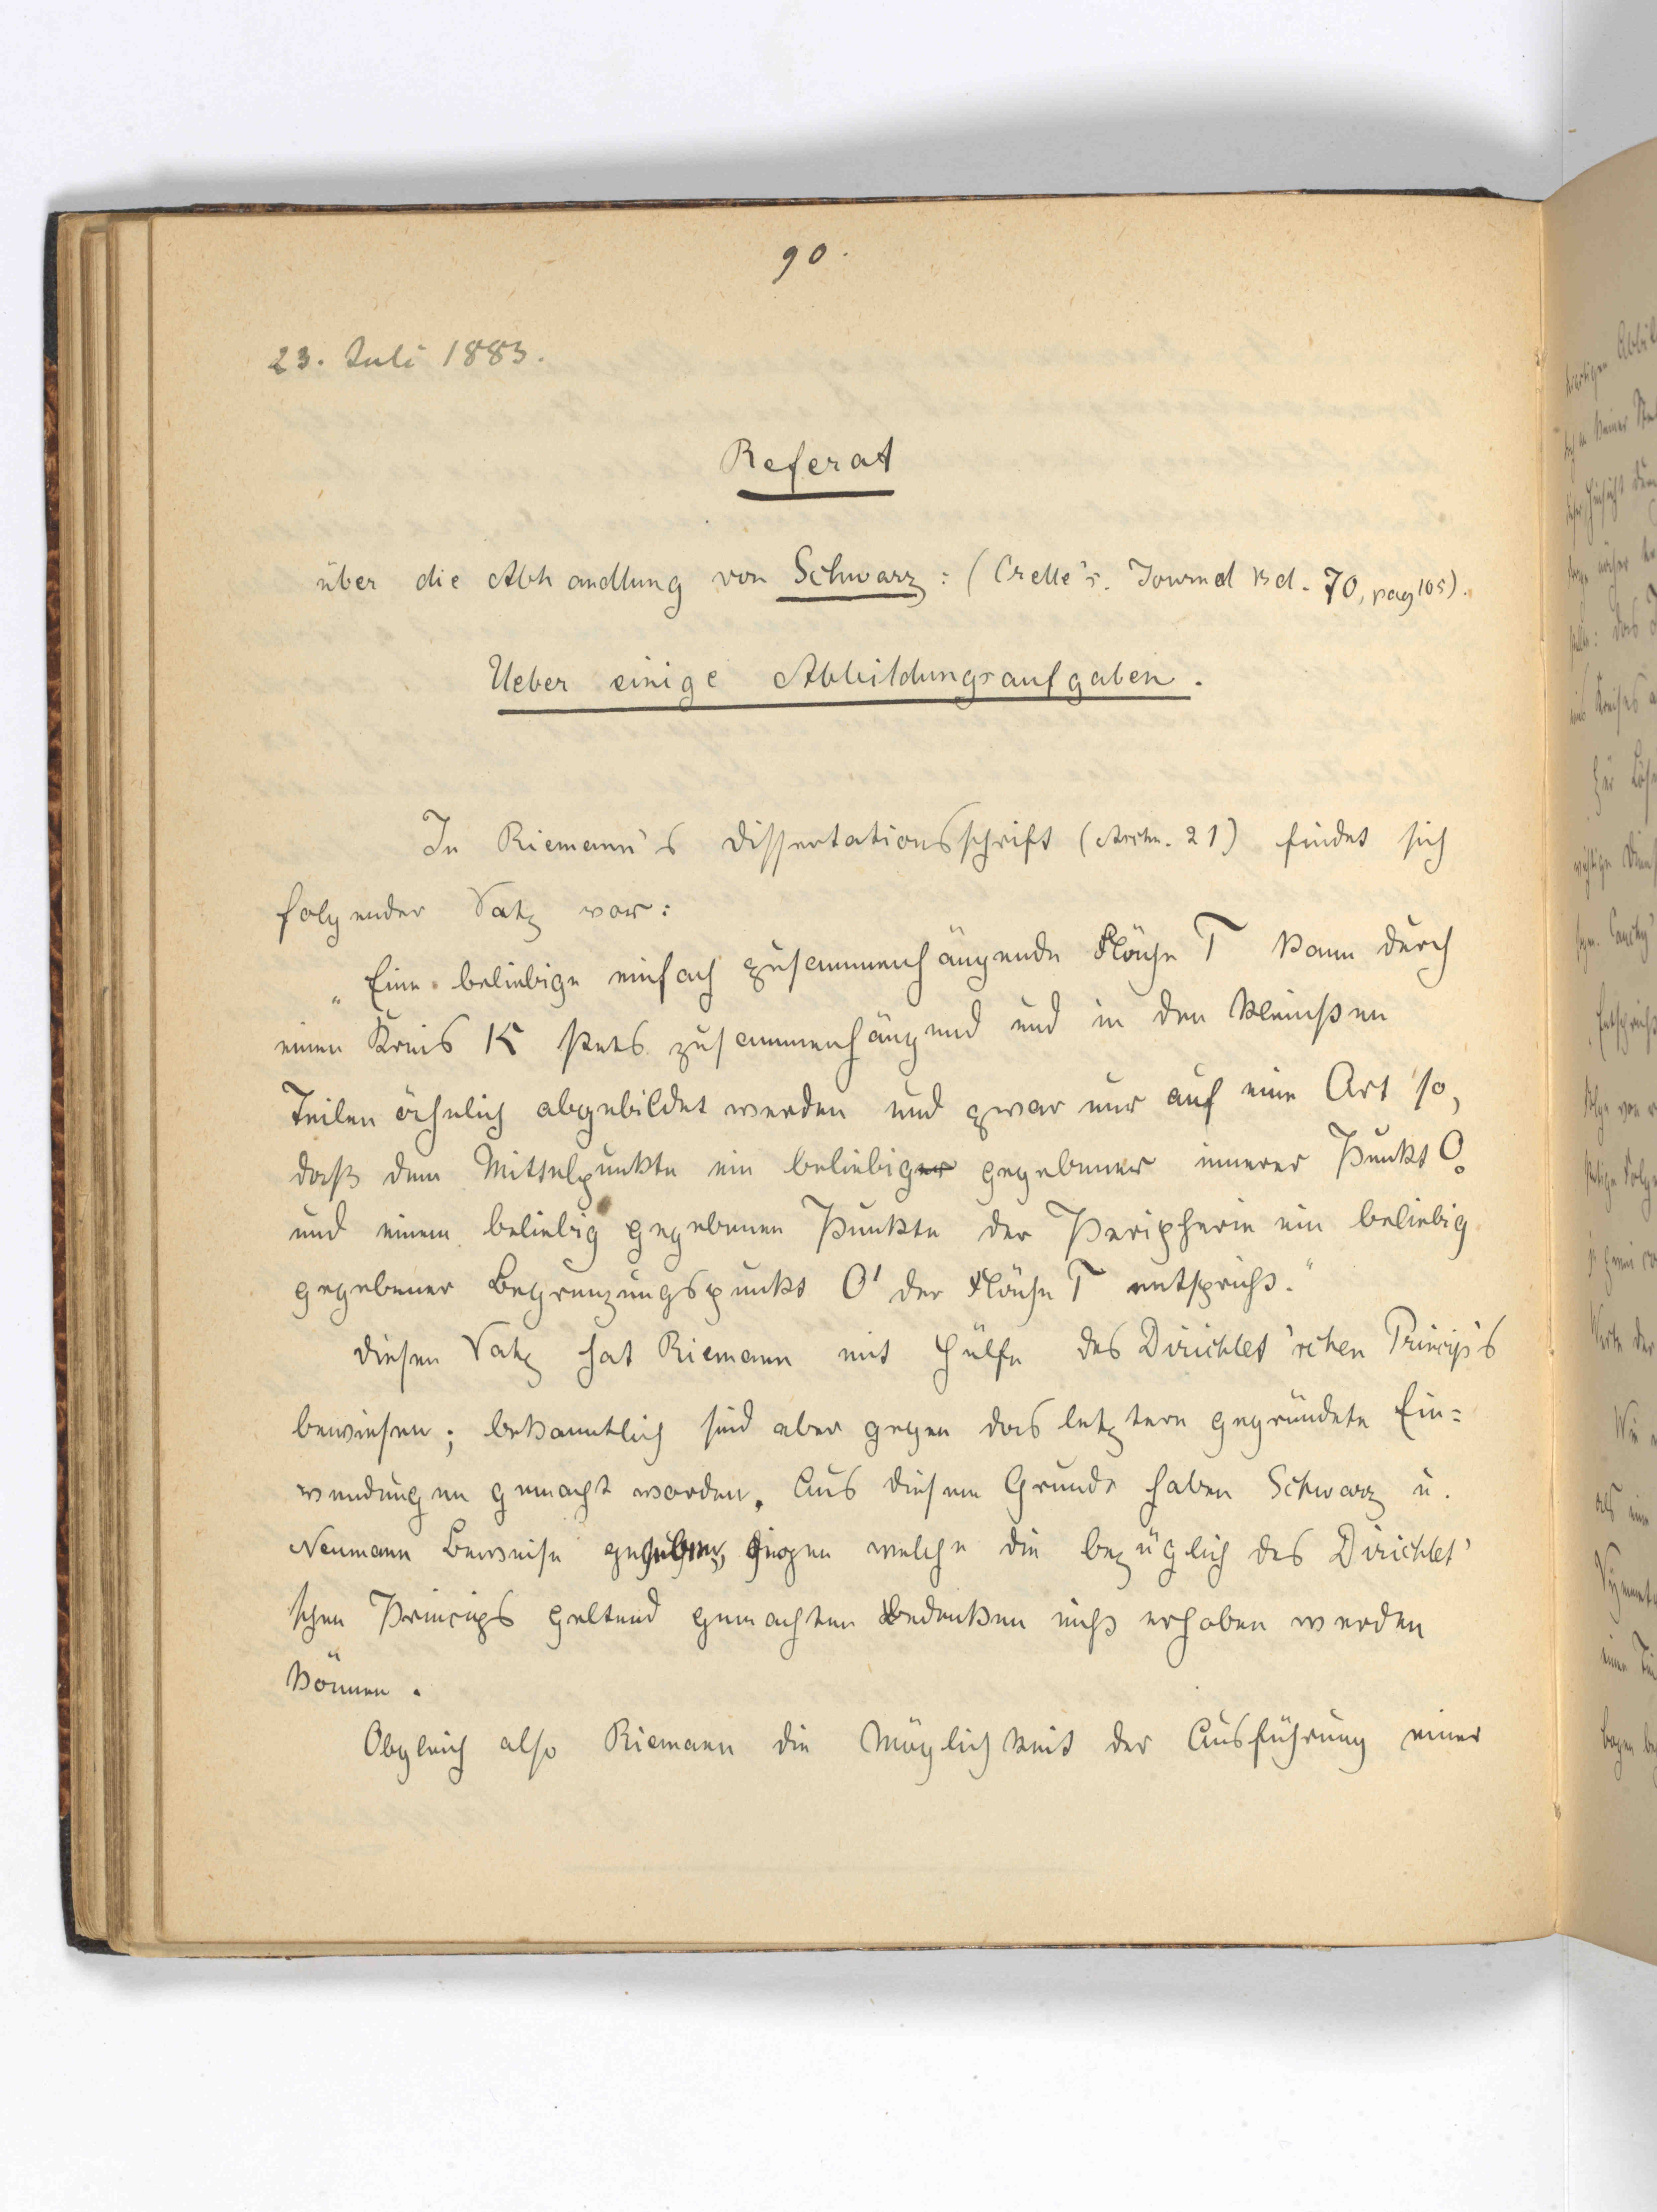 90.
23. Juli 1883.
Referat
über die Abhandlung von Schwarz: (Crelle's. Journal Bd. 70, pag 105).
Ueber einige Abbildungsaufgaben.
In Riemann's Dissertationsschrift (Artk. 21) findet sich
folgender Satz vor:
„Eine beliebige einfach zusammenhängende Fläche T kann durch
einen Kreis K stets zusammenhängend und in den kleinsten
Teilen ähnlich abgebildet werden und zwar nur auf eine Art so,
daß dem Mittelpunkte ein beliebig gegebener innerer Punkt O
und einem beliebig gegebenen Punkte der Peripherie ein beliebig
gegebener Begrenzungspunkt O' der Fläche T entspricht."
Diesen Satz hat Riemann mit Hülfe des Dirichlet'schen Princip's
bewiesen; bekanntlich sind aber gegen das letztere gegründete Ein=
wendungen gemacht worden. Aus diesem Grunde haben Schwarz u.
Neumann Beweise gegeben, gegen welche die bezüglich des Dirichlet'
schen Princips geltend gemachten Bedenken nicht erhoben werden
können.
Obgleich also Riemann die Möglichkeit der Ausführung einer